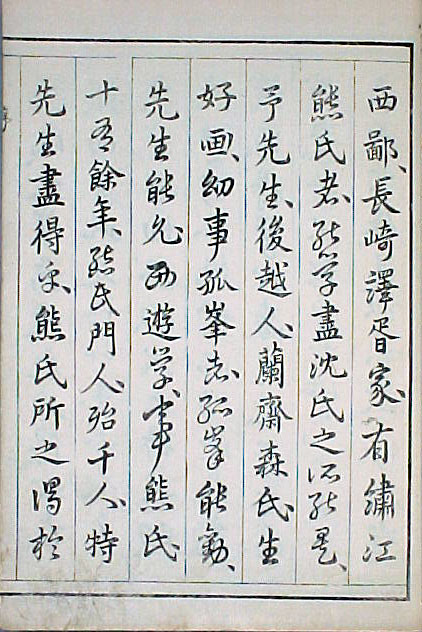 西鄙、長崎譯胥家、有繡江
熊氏者、能学盡沈氏之所能是、
予先生、後越人蘭齋森氏、生
好画、幼事孤峯老、孤峯能勸、
先生能允、西遊学、事熊氏
十有餘年、熊氏門人、殆千人、特
先生盡得乎、熊氏所之得於